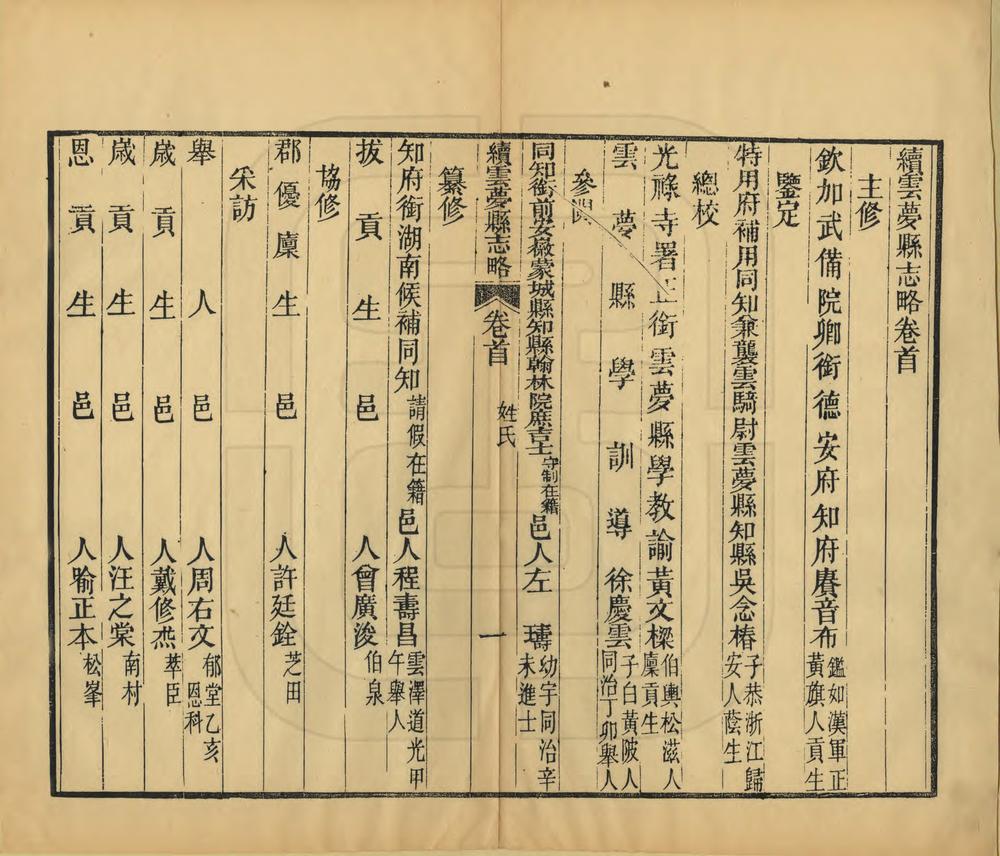 續雲夢縣志略卷首
主修
欽加武備院卿銜德安府知府賡音布鑑如漢軍正黃旗人貢生
鑒定
特用府補用同知兼襲雲騎尉雲夢縣知縣吳念椿子恭浙江歸安人蔭生
總校
光祿寺署正銜雲夢縣學教諭黃文樑伯輿松滋人廩貢生
雲夢縣學訓導徐慶雲子白黃陂人同治丁卯舉人
參閱
同知銜前安徽蒙城縣知縣翰林院庶吉士守制在籍邑人左𤩝幼宇同治辛未進士
續雲夢縣志略 卷首 姓氏 一
纂修
知府銜湖南候補同知請假在籍邑人程壽昌雲澤道光甲午舉人
拔貢生邑人曾廣浚伯泉
協修
郡優廩生邑人許廷銓芝田
采訪
舉人邑人周右文郁堂乙亥恩科
歲貢生邑人戴修杰莘臣
歲貢生邑人汪之棠南村
恩貢生邑人喻正本松峯